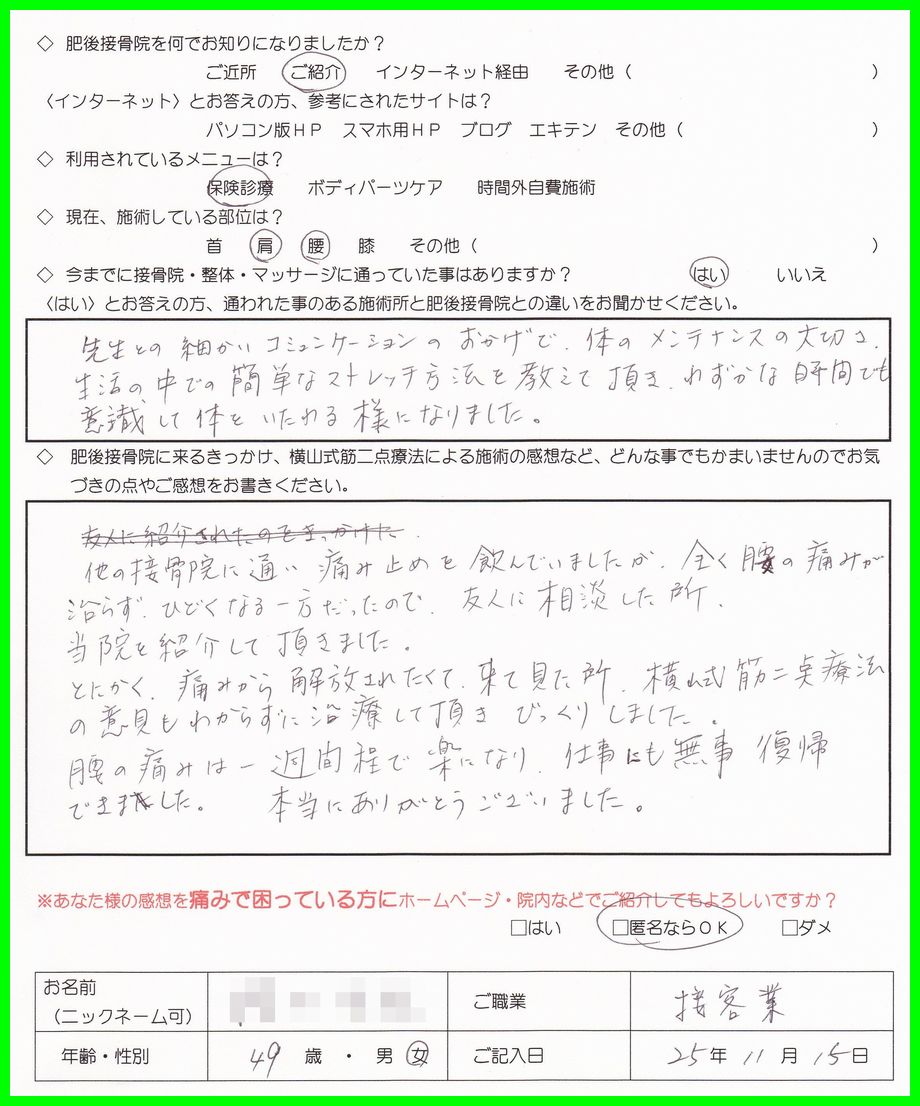 ◇ 肥後接骨院を何でお知りになりましたか？
ご近所 ご紹介 インターネット経由 その他（ ）
〈インターネット〉とお答えの方、参考にされたサイトは？
パソコン版ＨＰ スマホ用ＨＰ ブログ エキテン その他（ ）
◇ 利用されているメニューは？
保険診療 ボディパーツケア 時間外自費施術
◇ 現在、施術している部位は？
首 肩 腰 膝 その他（ ）
◇ 今までに接骨院・整体・マッサージに通っていた事はありますか？ はい いいえ
〈はい〉とお答えの方、通われた事のある施術所と肥後接骨院との違いをお聞かせください。
先生との細かいコミュンケーションのおかげで、体のメンテナンスの大切さ、
生活の中での簡単なストレッチ方法を教えて頂き、わずかな時間でも
意識して体をいたわる様になりました。
◇ 肥後接骨院に来るきっかけ、横山式筋二点療法による施術の感想など、どんな事でもかまいませんのでお気
づきの点やご感想をお書きください。
友人に紹介されたのをきっかけた
他の接骨院に通い痛み止めを飲んでいましたが、全く腰の痛みが
治らず、ひどくなる一方だったので、友人に相談した所、
当院を紹介して頂きました。
とにかく、痛みから解放されたくて、来て見た所、横山式筋二点療法
の意見もわからずに治療して頂きびっくりしました。
腰の痛みは一週間程で楽になり、仕事にも無事復帰
できました。 本当にありがとうございました。
※あなた様の感想を痛みで困っている方にホームページ・院内などでご紹介してもよろしいですか？
□はい □匿名ならＯＫ □ダメ
お名前
（ニックネーム可）
ご職業 接客業
年齢・性別 49 歳 ・ 男 女 ご記入日 25年 11月 15日